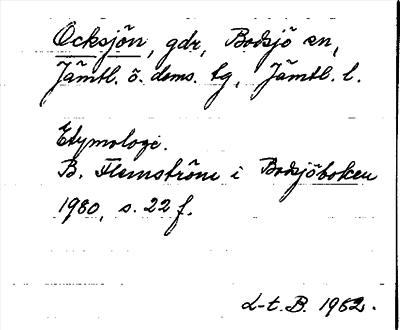 Ocksjön, gdr, Bodsjö sn,
Jämtl. ö. doms. tg, Jämtl. l.
Etymologi.
B. Flemström i Bodsjöboken
1980, s. 22 f.
L-t. B. 1982.